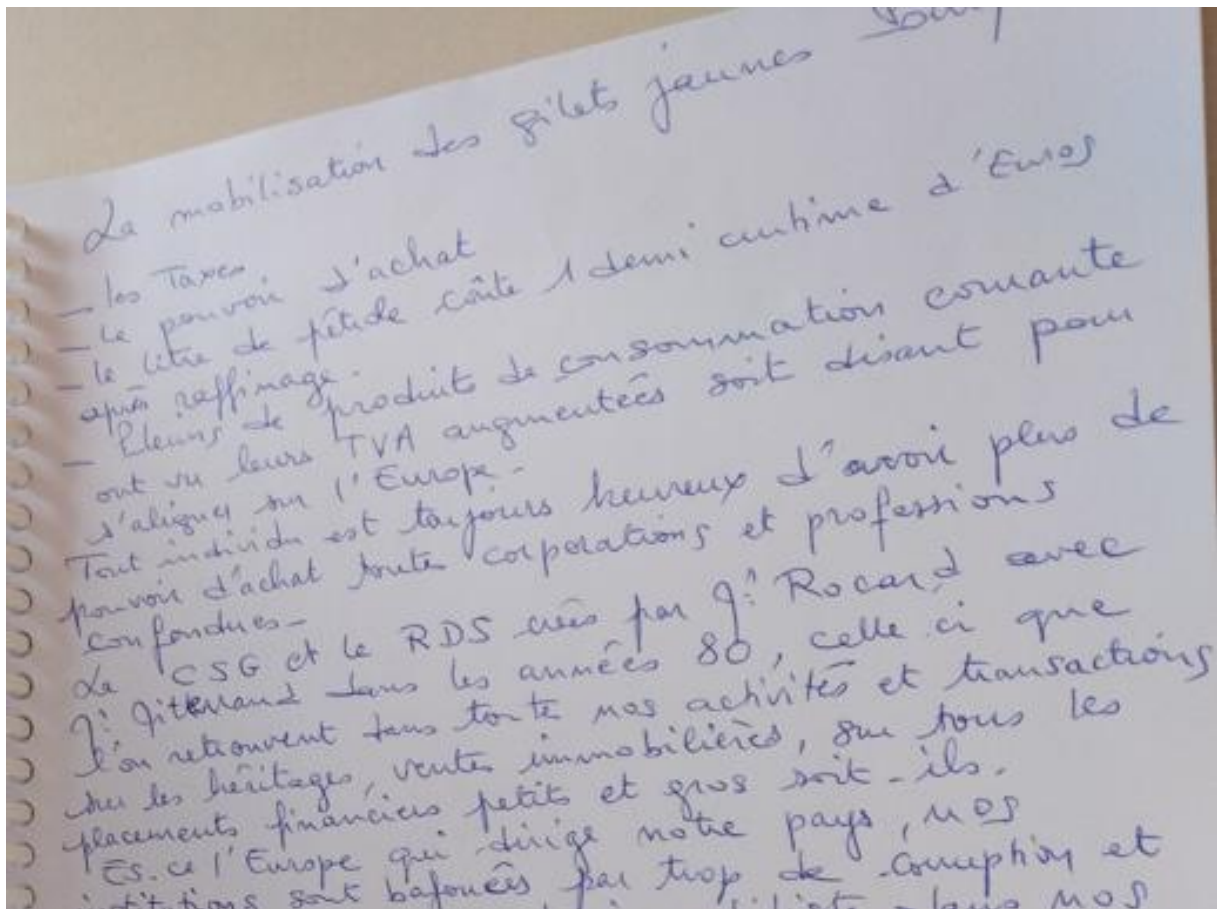 La mobilisation des gilets jaunes
- les Taxes
- Le pouvoir d'achat
- le litre de pétrole coûte 1 demi centime d'Euros
après raffinage.
- Pleins de produits de consommation courante
ont vu leurs TVA augmenteés soit disant pour
s'aligner sur l'Europe -
Tout individu est toujours heureux d'avoir plus de
pouvoir d'achat toutes corporations et professions
confondues -
La CSG et le RDS créés par Mr Rocard avec
Mr Mitterrand dans les années 80, celle ci que
l'on retrouvent dans toute nos activités et transactions
sur les héritages, ventes immobilières, sur tous les
placements financiers petits et gros soit-ils.
Es. ce l'Europe qui dirige notre pays, nos
institutions sont bafoueés par trop de corruption et
dans nos